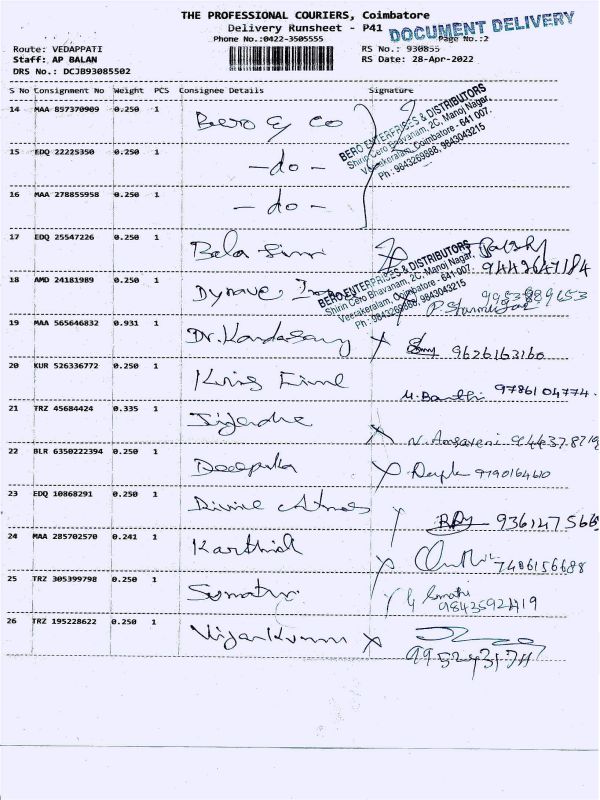 THE PROFESSIONAL COURIERS, Coimbatore
Delivery Runsheet - P41
DOCUMENT DELIVERY
Phone No.:0422-3505555
Page No.:2
Route: VEDAPPATI
RS No.: 930855
Staff: AP BALAN
RS Date: 28-Apr-2022
DRS No.: DCJB93085502
S No Consignment No Weight PCS Consignee Details Signature
14 MAA 857370909 0.250 1 Bero & Co
BERO ENTERPRISES & DISTRIBUTORS
Shirin Cero Bhavanam, 2C, Manoj Nagar,
Veerakeralam, Coimbatore - 641 007.
Ph : 9843269888, 9843043215
15 EDQ 22225350 0.250 1 - do -
16 MAA 278855958 0.250 1 - do -
17 EDQ 25547226 0.250 1 Bala
9442647184
BERO ENTERPRISES & DISTRIBUTORS
Shirin Cero Bhavanam, 2C, Manoj Nagar,
Veerakeralam, Coimbatore - 641 007.
Ph : 9843269888, 9843043215
18 AMD 24181989 0.250 1
19 MAA 565646832 0.931 1 Dr. Kandasamy 9626163160
20 KUR 526336772 0.250 1 9786104774.
21 TRZ 45684424 0.335 1
22 BLR 6350222394 0.250 1 Deepika 9790164610
23 EDQ 10868291 0.250 1 Divine 936147566
24 MAA 285702570 0.241 1 Karthick 7406156688
25 TRZ 305399798 0.250 1
9843592419
26 TRZ 195228622 0.250 1 Vijaykumar